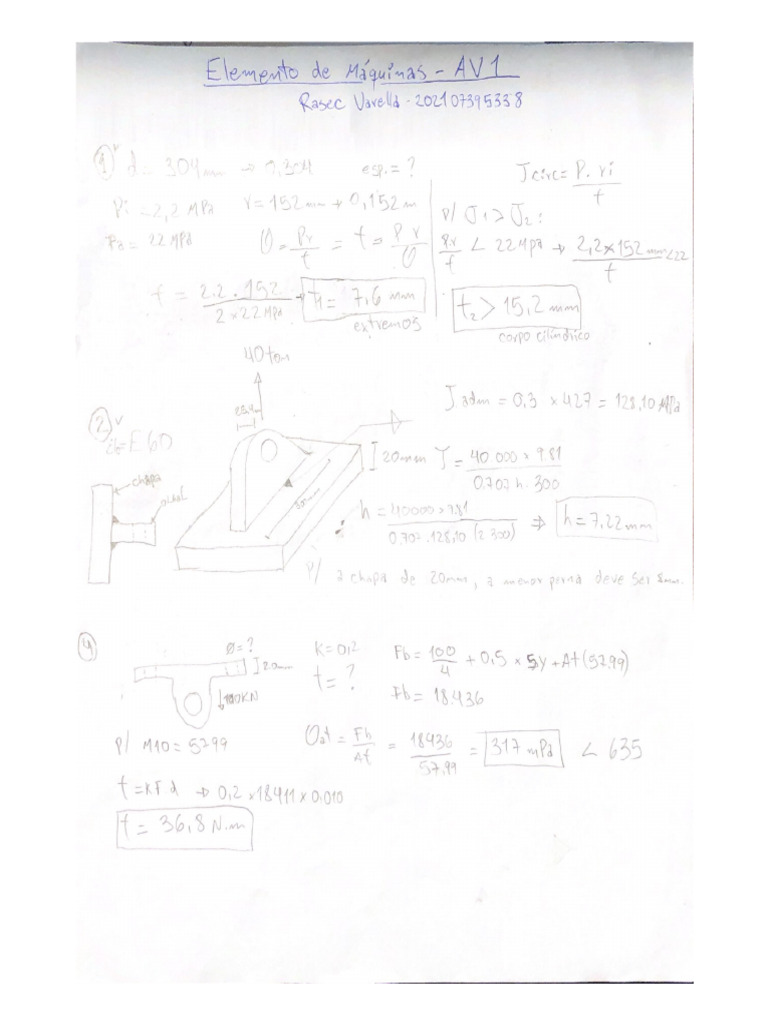 Elemento de Máquinas - AV1
Rasec Varella - 202107395338
1) d = 304 mm → 0,304 esp. = ?
Pi = 2,2 MPa r = 152 mm → 0,152 m
Pa = 22 MPa
σ = Pr/t = t = P r/σ
t = 2.2 . 152 / 2 x 22 MPa → t1 = 7,6 mm
extremos
σcirc = P. ri / t
p/ σ1 > σ2:
P.r/t < 22 MPa → 2,2 x 152 mm / t < 22
t2 > 15,2 mm
corpo cilíndrico
2) E60
40 ton
chapa
20mm
300mm
σadm = 0,3 x 427 = 128,10 MPa
σ = 40 000 x 9.81 / 0.707 h . 300
h = 40000 x 9.81 / 0,707 . 128,10 (2 300) ⇒ h = 7,22 mm
p/ a chapa de 20mm, a menor perna deve ser 8mm.
4) ø = ? K = 0,2
20mm t = ?
100KN
Fb = 100/4 + 0,5 x Sy + At (57.99)
Fb = 18.436
p/ M10 = 5799
σat = Fb/At = 18436 / 57.99 = 317 mPa < 635
t = KF.d → 0,2 x 18411 x 0.010
t = 36,8 N.m